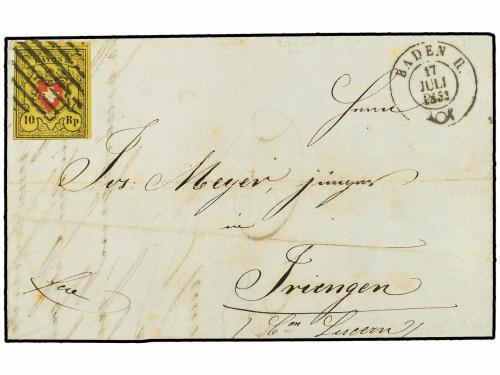 10 Rp
BADEN II.
17
JULI
1851
Herrn
Jos: Meyer, jünger
in
Triengen
Cton Lucern